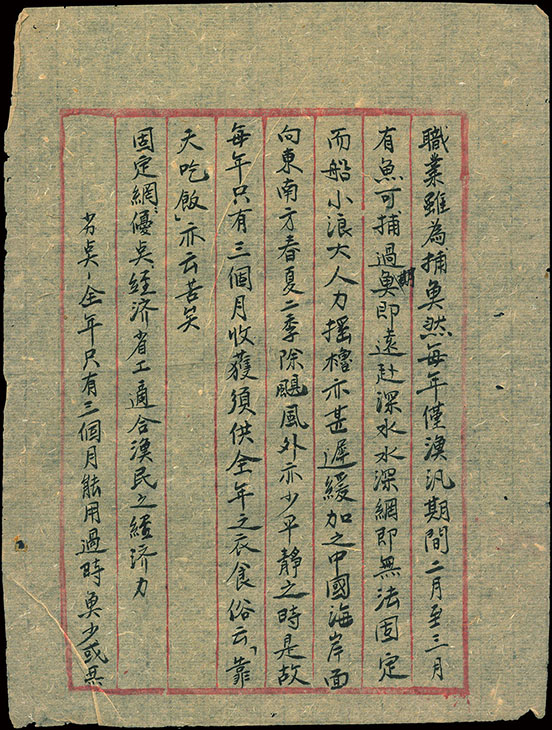 職業雖為捕魚然每年僅漁汛期間二月至三月
有魚可捕過魚期即遠赴深水水深網即無法固定
而船小浪大人力搖櫓亦甚遲緩加之中國海岸面
向東南方春夏二季除颶風外亦少平靜之時是故
每年只有三個月收獲須供全年之衣食俗云「靠
天吃飯」亦云苦矣
固定網、優点 經济省工適合漁民之經济力
劣点、全年只有三個月能用過時魚少或無